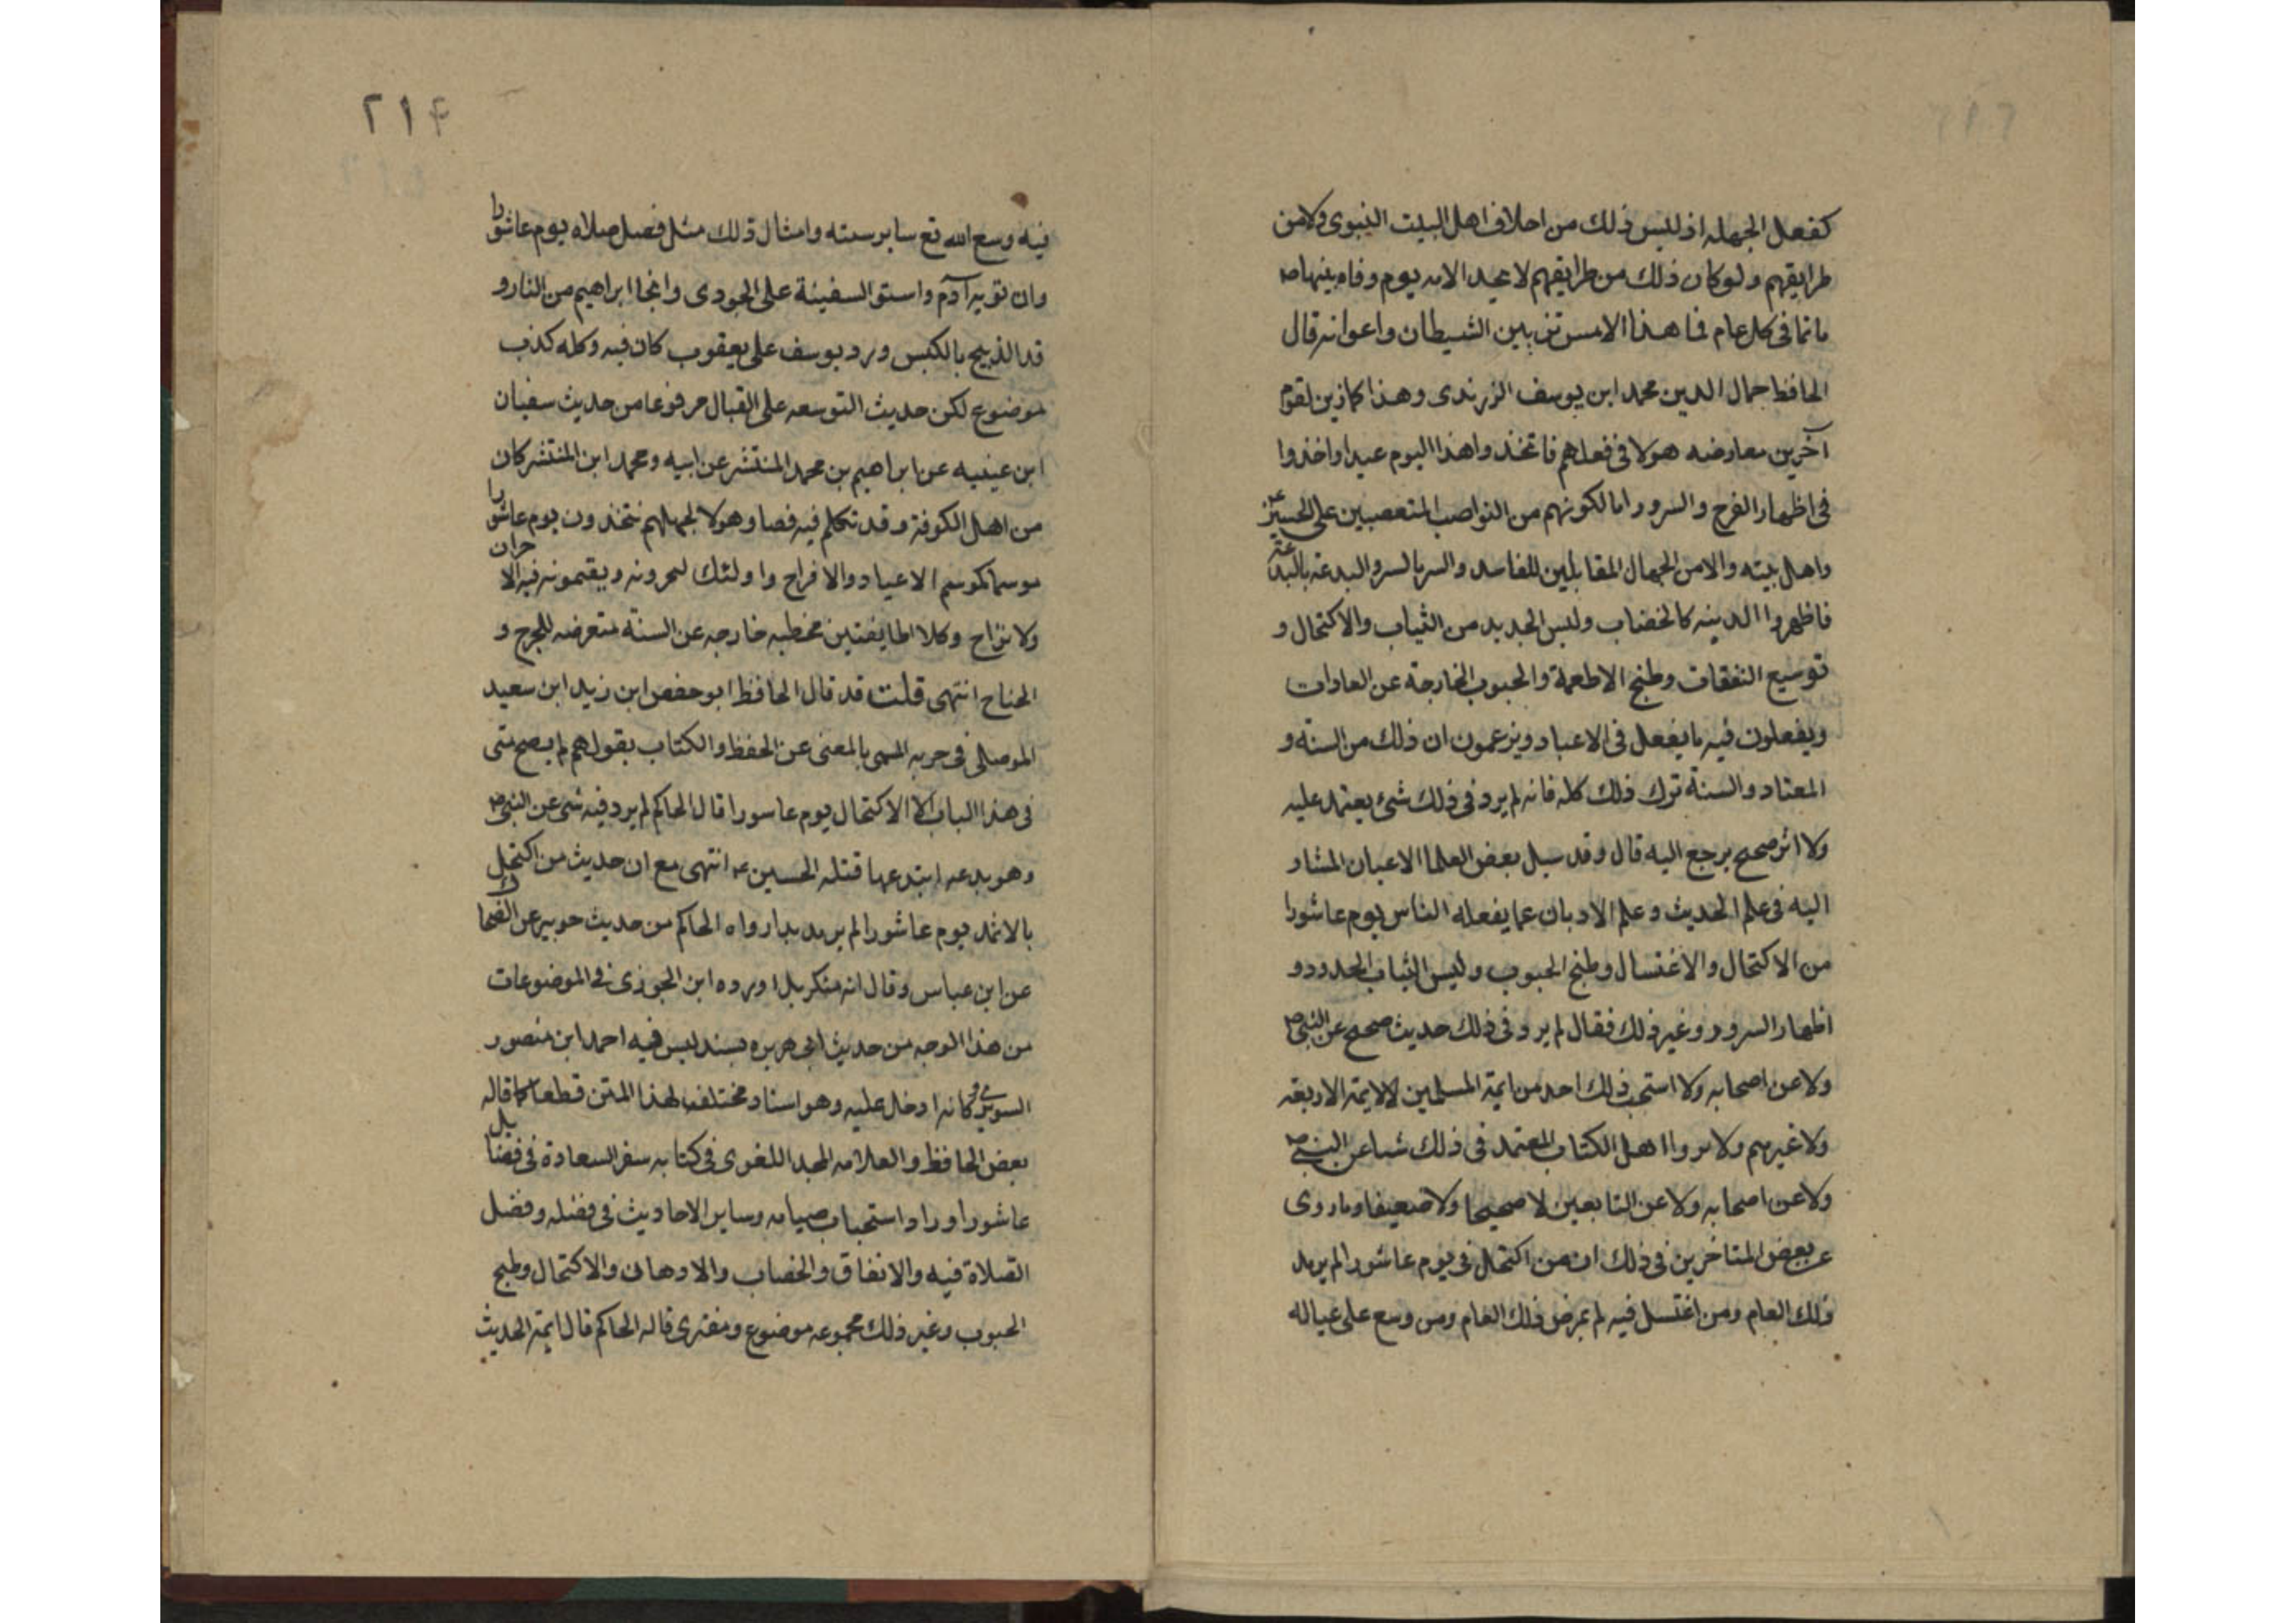 كفعل الجهله اذ ليس ذلك من اخلاق اهل البيت النبوى ولا من
طرايقهم ولو كان ذلك من طرايقهم لا يحد الامه يوم وفاه نبيها ص
ماتما فى كل عام فما هذا الا من تزيين الشيطان واعوانه قال
الحافظ جمال الدين محمد ابن يوسف الزرندى وهذا كما زين لقوم
آخرين معارضه هولا فى فعلهم فاتخذوا هذا اليوم عيدا واخذوا
فى اظهار الفرح والسرور اما لكونهم من النواصب المتعصبين على الحسين ع
واهل بيته والا من الجهال المقابلين للفاسد والسر بالسر والبدعه بالبدعة
فاظهروا الدينه كالخضاب ولبس الجديد من الثياب والاكتحال و
توسيع النفقات وطبخ الاطعمة والحبوب الخارجة عن العادات
ويفعلون فيه ما يفعل فى الاعياد ويزعمون ان ذلك من السنه و
المعتاد والسنة ترك ذلك كله فانه لم يرد فى ذلك شئ يعتمد عليه
ولا اثر صحيح يرجع اليه قال وقد سيل بعض العلما الاعيان المشار
اليه فى علم الحديث وعلم الاديان عما يفعله الناس يوم عاشورا
من الاكتحال والاغتسال وطبخ الحبوب ولبس الثياب الجدد و
اظهار السرور وغير ذلك فقال لم يرد فى ذلك حديث صحيح عن النبى ص
ولا عن اصحابه ولا استحب ذلك احد من ايمة المسلمين لا الايمة الاربعه
ولا غيرهم ولا رووا اهل الكتاب المعتمد فى ذلك شيا عن النبى ص
ولا عن اصحابه ولا عن التابعين لا صحيحا ولا ضعيفا وما روى
عن بعض المتاخرين فى ذلك ان من اكتحل فى يوم عاشورا لم يرمد
ذلك العام ومن اغتسل فيه لم يمرض ذلك العام ومن وسع على عياله
٢١۴
فيه وسع الله تع سايرسته وامثال ذلك مثل فضل صلاه يوم عاشورا
وان توبه آدم واستو السفينة على الجودى وانجا ابراهيم من النار و
فدا الذبيح بالكبش ورد يوسف على يعقوب كان فيه وكله كذب
موضوع لكن حديث التوسعه على القيال مرفوعا من حديث سفيان
ابن عينيه عن ابراهيم بن محمد المنتشر عن ابيه ومحمد ابن المنتشر كان
من اهل الكوفة وقد تكلم فيه فصاو هولا لجهلهم يتخذون يوم عاشورا
موسما كموسم الاعياد والافراح واولئك يتخذونه ويقيمونه فيه الاحزان
ولا تزاح وكلا الطايفتين مخطيه خارجه عن السنة متعرضه للجرح و
الجناح انتهى قلت قد قال الحافظ ابو حفص ابن زيد ابن سعيد
الموصلى فى المسمى بالمعنى عن الحفظ والكتاب بقولهم لم يصح شى
فى هذا الباب الا الاكتحال يوم عاسورا قال الحاكم لم يرد فيه شى عن النبى ص
وهو بدعه ابتدعها قتله الحسين ع انتهى مع ان حديث من اكتحل
بالاثمد يوم عاشورا لم يرمد رواه الحاكم من حديث جويبر عن الضحاك
عن ابن عباس وقال انه منكر بل اورده ابن الجوزى فى الموضوعات
من هذا الوجه من حديث ابى هريره بسند ليس فيه احمد ابن منصور
وكانه ادخل عليه وهو اسناد مختلف لهذا المتن قطعا كما قاله
بعض الحافظ والعلامه المجد اللغوى فى كتابه سفر السعادة فى فضايل
عاشورا ورد استحباب صيامه وساير الاحاديث فى فضله وفضل
الصلاة فيه والانفاق والخضاب والادهان والاكتحال وطبخ
الحبوب وغير ذلك مجموعه موضوع ومفترى قاله الحاكم قال ايمة الحديث